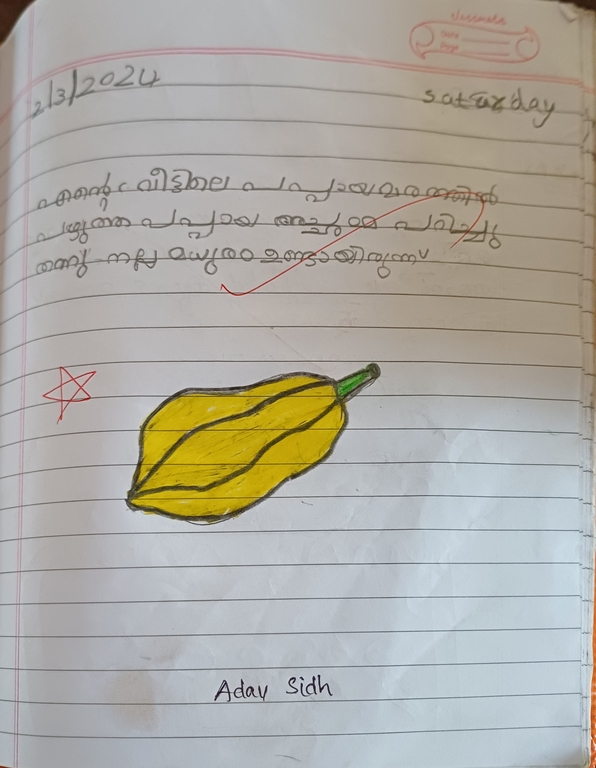 classmate
Date
Page
2/3/2024
saturday
എൻ്റെ വീട്ടിലെ പപ്പായമരത്തിൽ
പഴുത്ത പപ്പായ അച്ചമ്മ പറിച്ചു
തന്നു നല്ല മധുരം ഉണ്ടായിരുന്നു
Adav Sidh